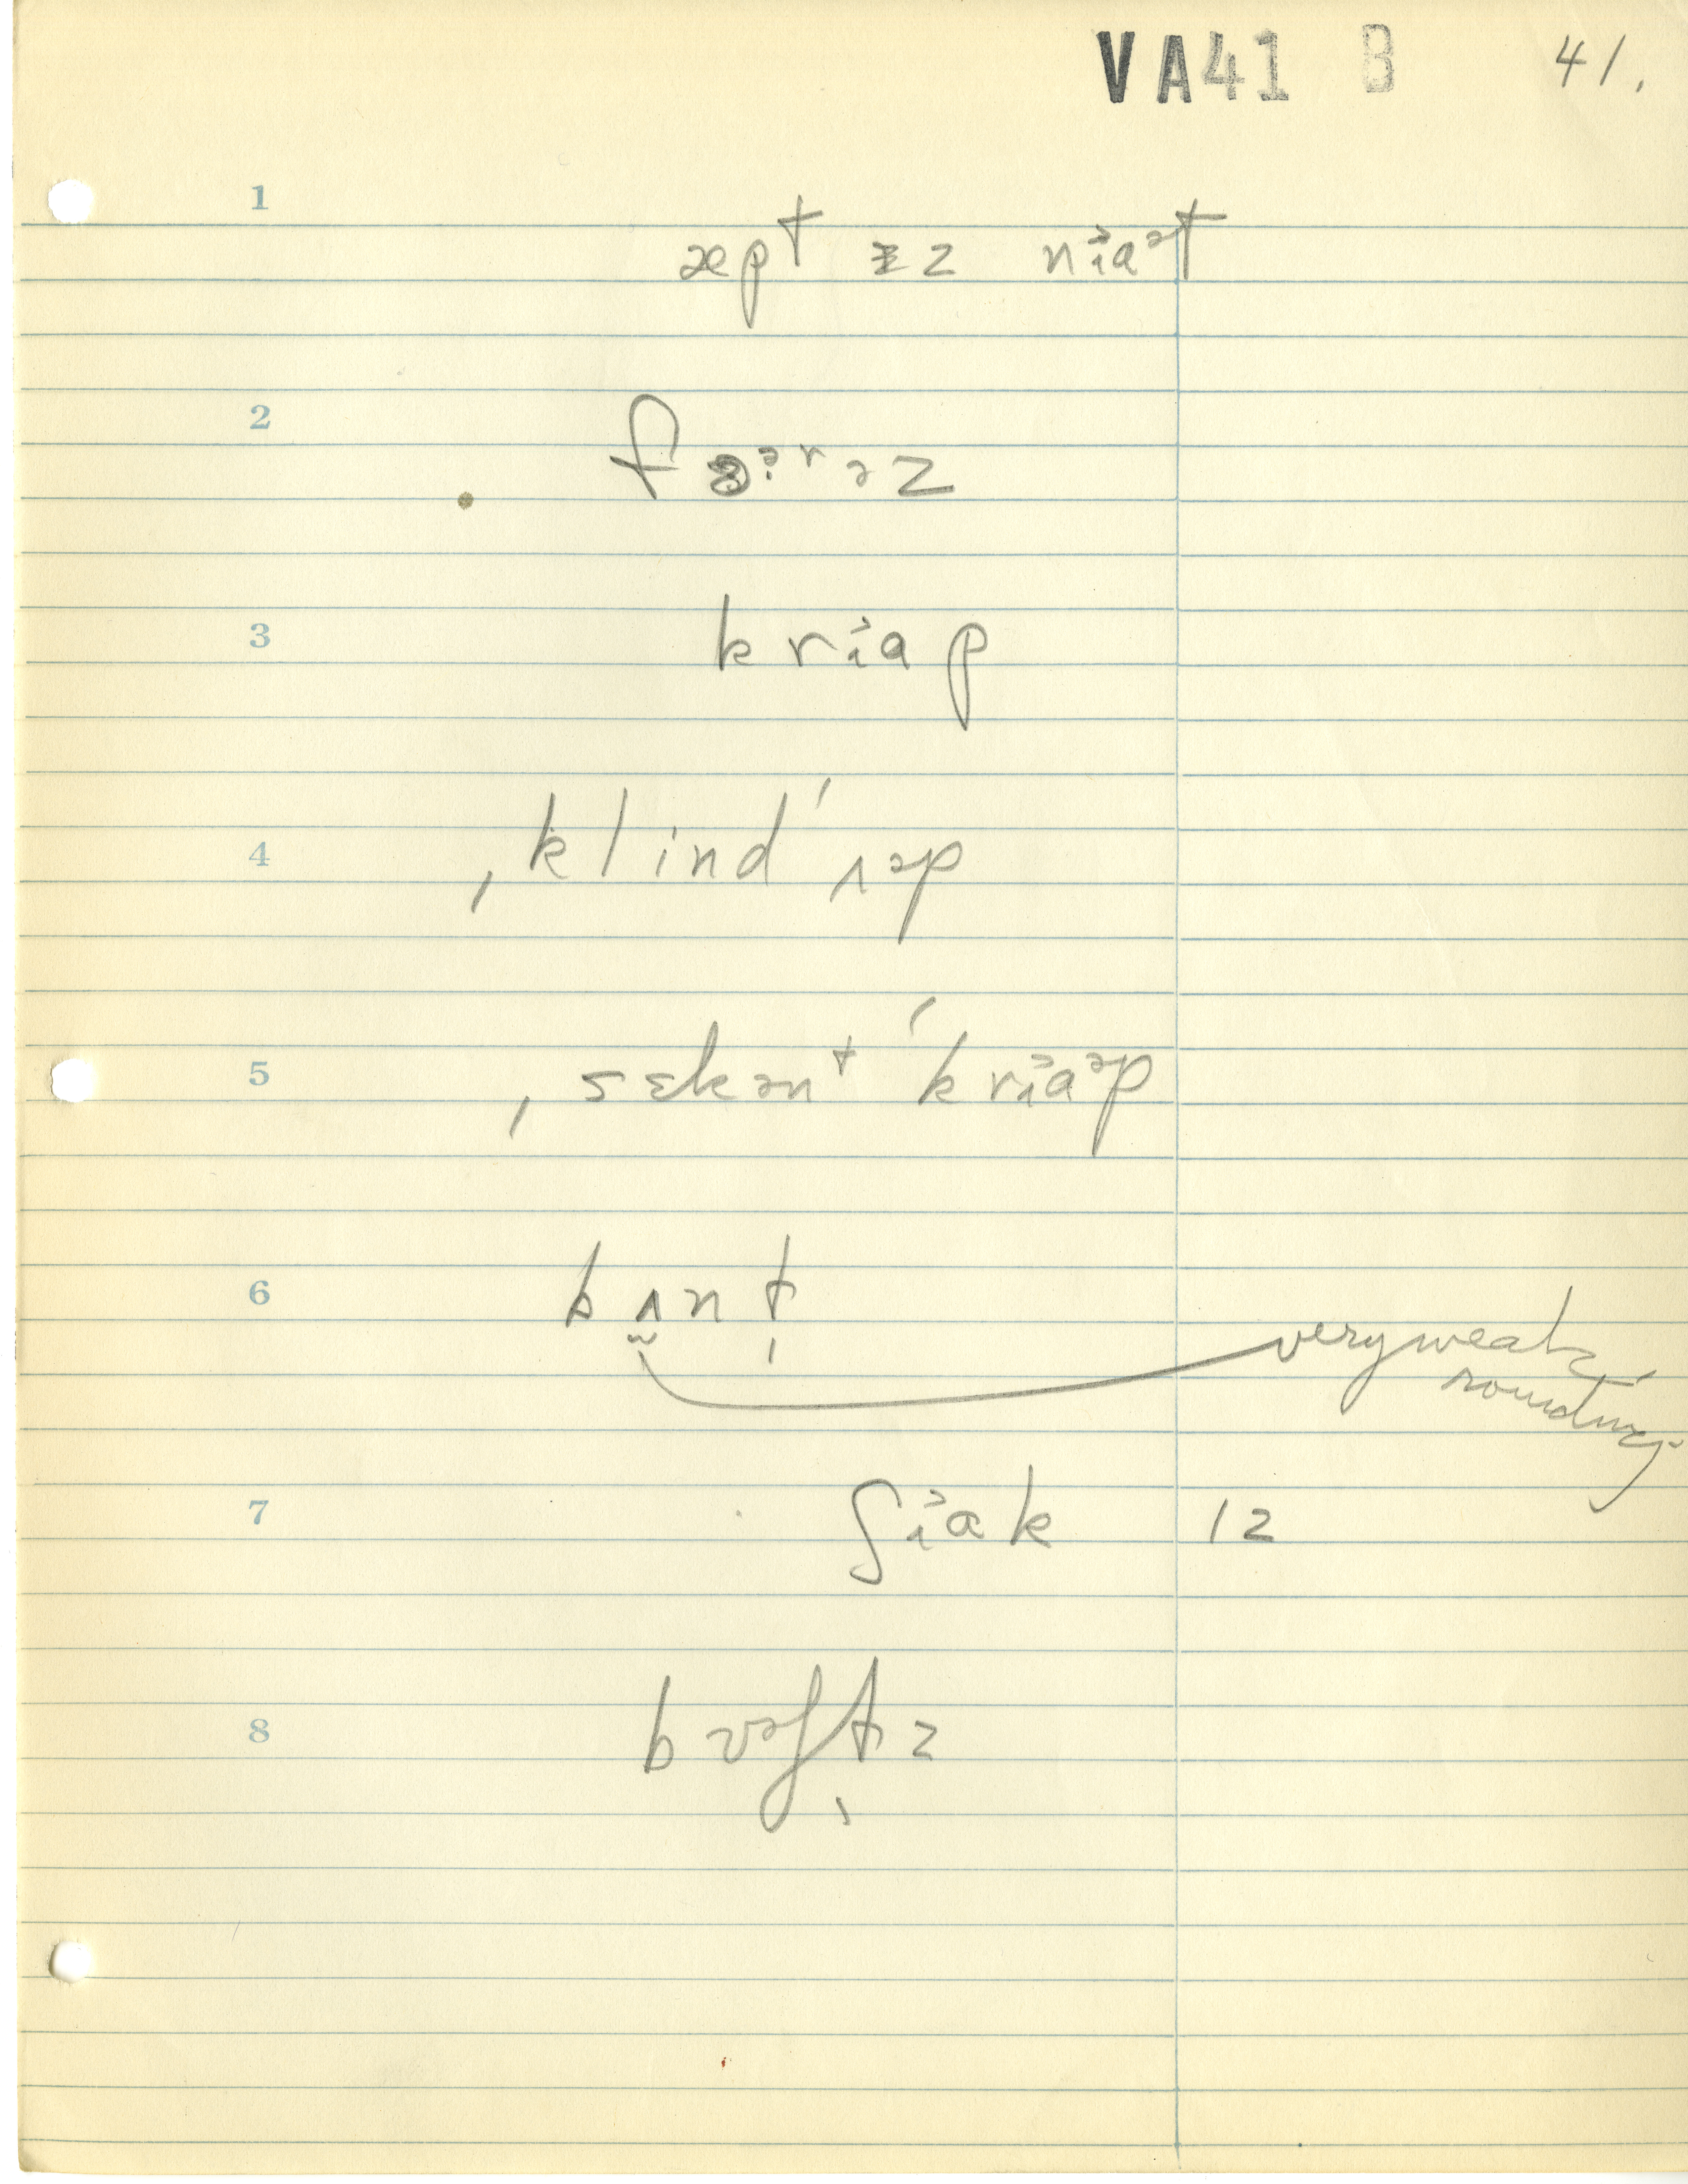 VA41 B 41.
1 æpt ɨz nɨ˃aᵊt
2 fɵᵊ˞ʳəz
3 krɨ˃ap
4 ˌklind ˈʌəp
5 ˌsɛkənt ˈkrɨ˃aᵊp
6 bʌnt very weak rounding
7 ʃɨ˃ak 12
8 bʊəʃtz